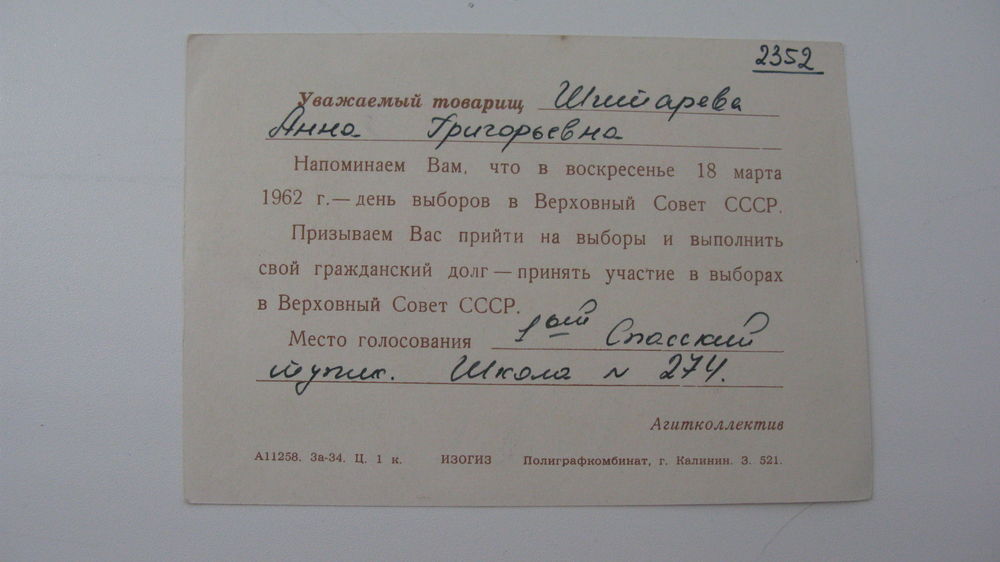 2352
Уважаемый товарищ Шпитарева
Анна Григорьевна
Напоминаем Вам, что в воскресенье 18 марта
1962 г. — день выборов в Верховный Совет СССР.
Призываем Вас прийти на выборы и выполнить
свой гражданский долг — принять участие в выборах
в Верховный Совет СССР.
Место голосования 1ый Спасский
тупик. Школа N 274.
Агитколлектив
А11258. За-34. Ц. 1 к. ИЗОГИЗ Полиграфкомбинат, г. Калинин. З. 521.